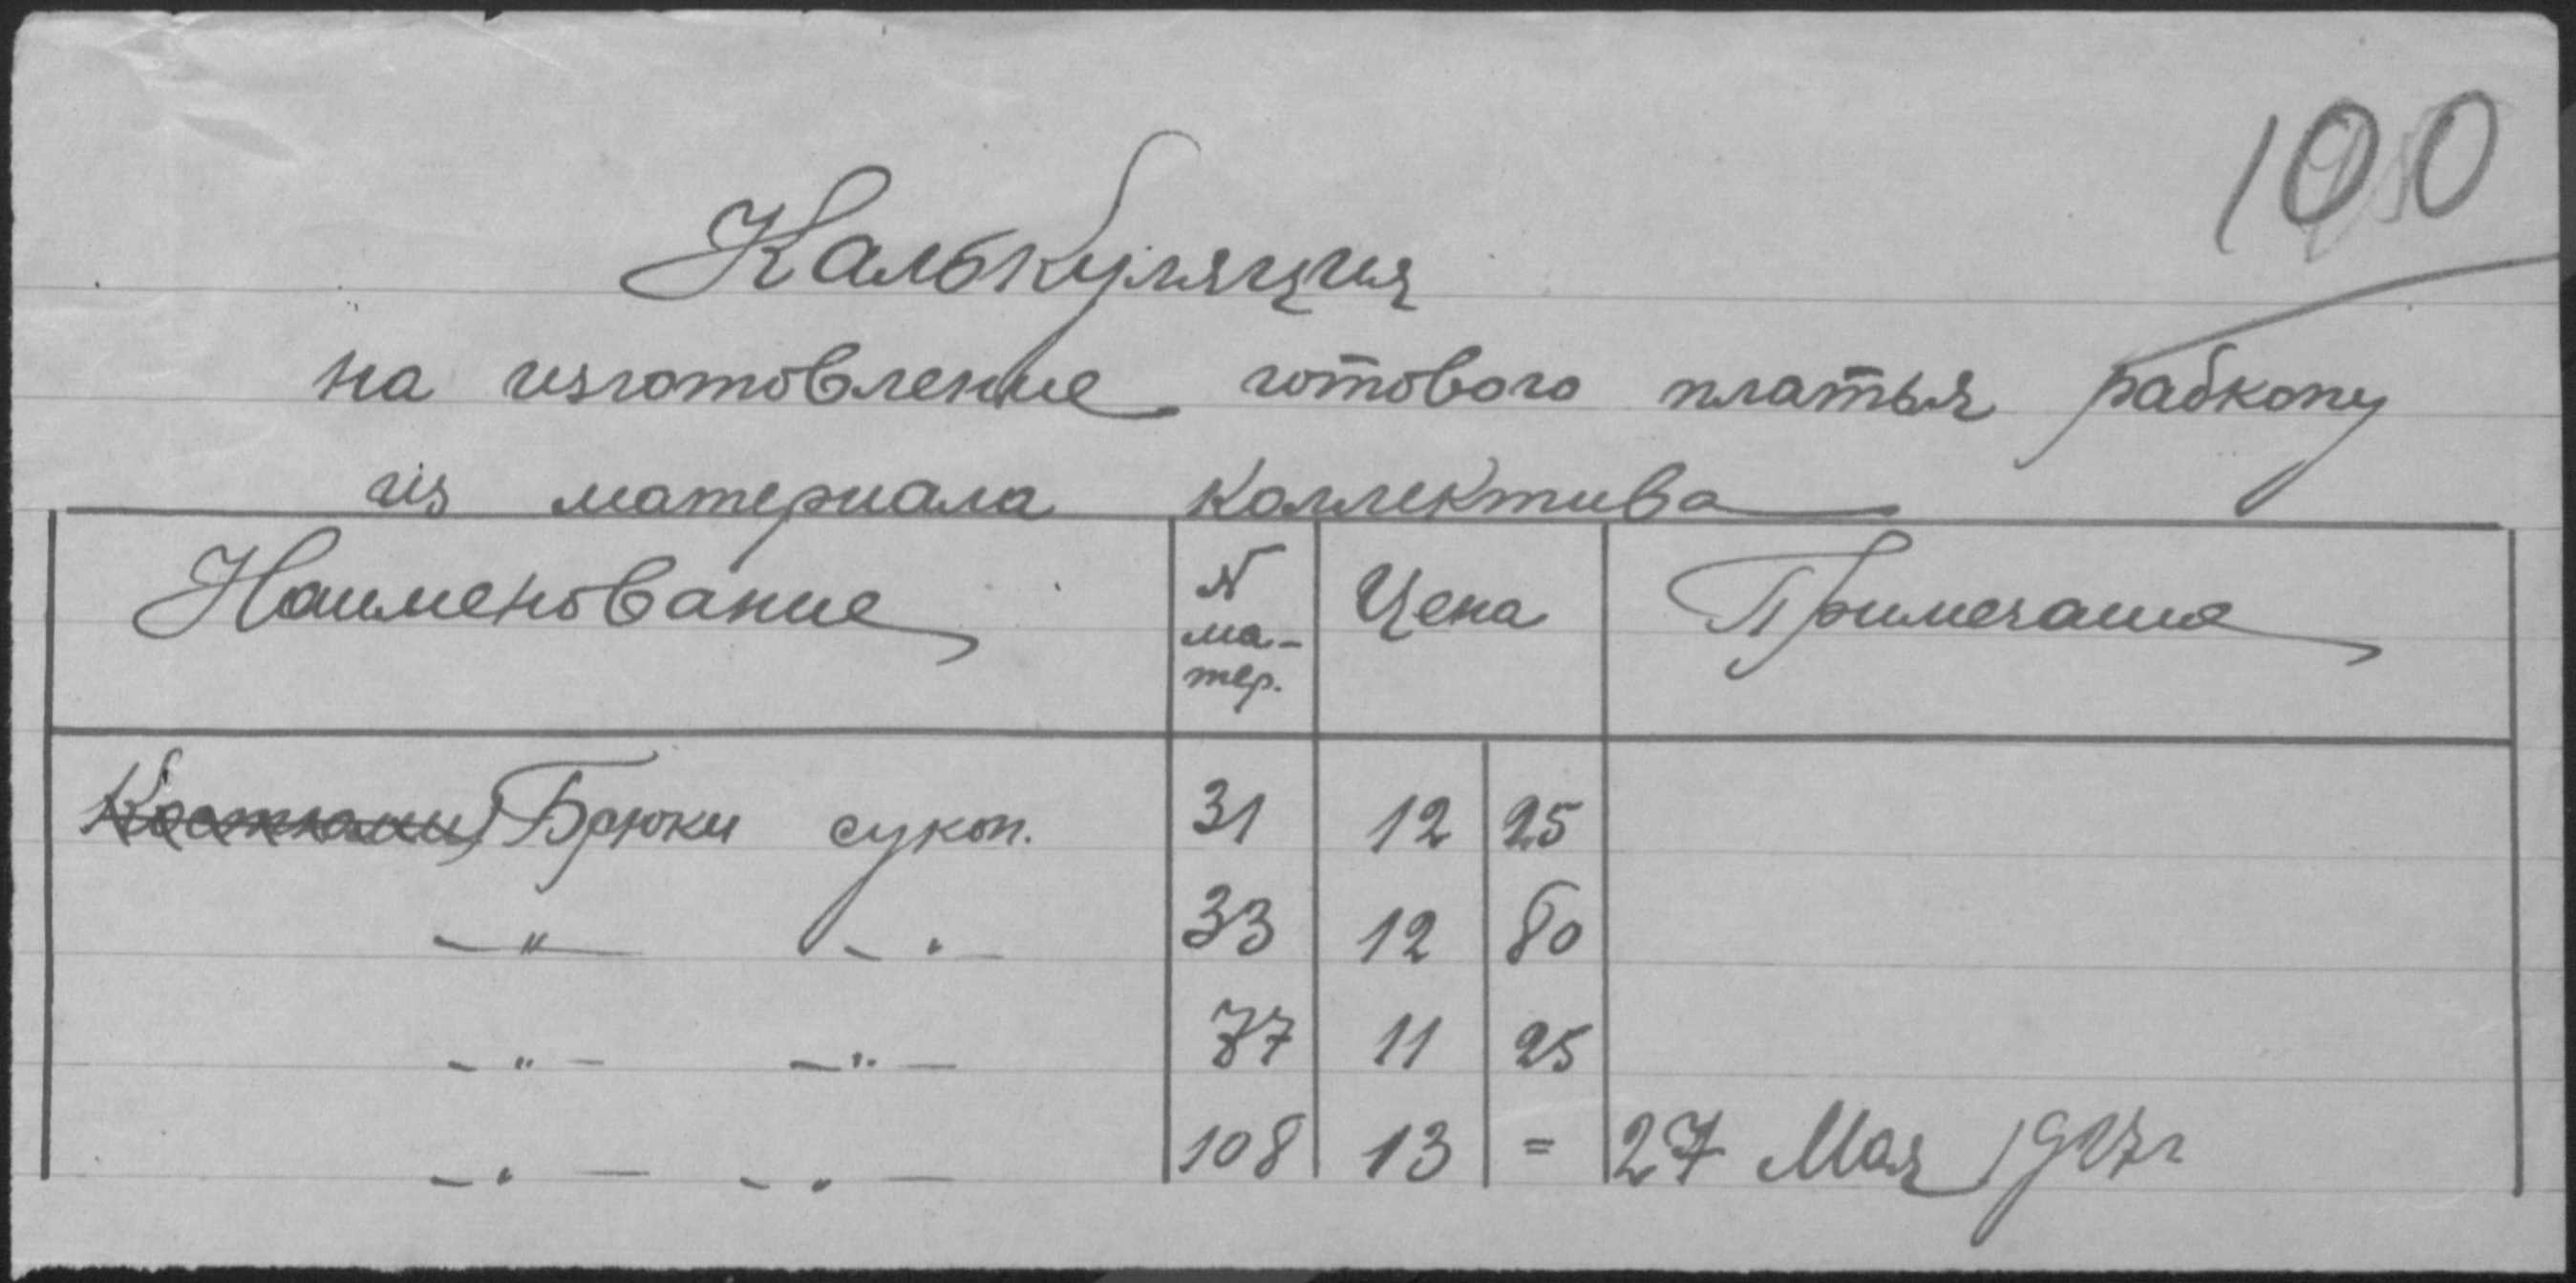 100
Калькуляция
на изготовление готового платья рабкопу
из материала коллектива
Наименование № ма-тер. Цена Примечание
Костюмы Брюки сукон. 31 12 25
— " — — " — 33 12 80
— " — — " — 77 11 25
— " — — " — 108 13 = 27 Мая 1927г